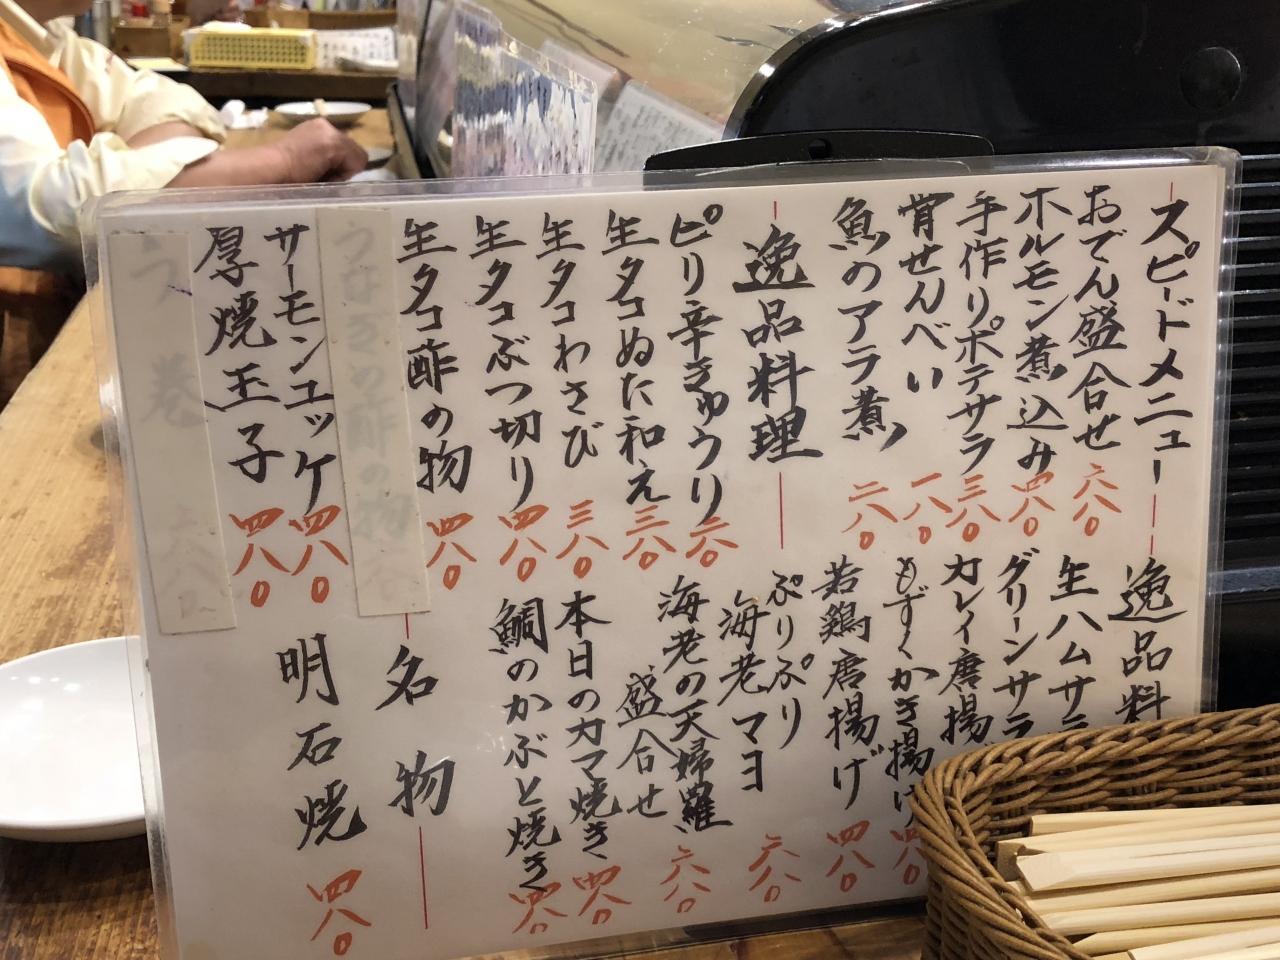 スピードメニュー
おでん盛合せ 六八〇
ホルモン煮込み 四八〇
手作りポテサラ 三八〇
骨せんべい 一八〇
魚のアラ煮 二八〇
逸品料理
ピリ辛きゅうり 二八〇
生タコぬた和え 三八〇
生タコわさび 三八〇
生タコぶつ切り 四八〇
生タコ酢の物 四八〇
うなぎの酢の物
サーモンユッケ 四八〇
厚焼玉子 四八〇
う巻
逸品料
生ハムサラ
グリーンサラ
カレイ唐揚
もずくかき揚げ 四八〇
若鶏唐揚げ 四八〇
ぷりぷり
海老マヨ 六八〇
海老の天婦羅
盛合せ 六八〇
本日のカマ焼き 四八〇
鯛のかぶと焼き 四八〇
名物
明石焼 四八〇